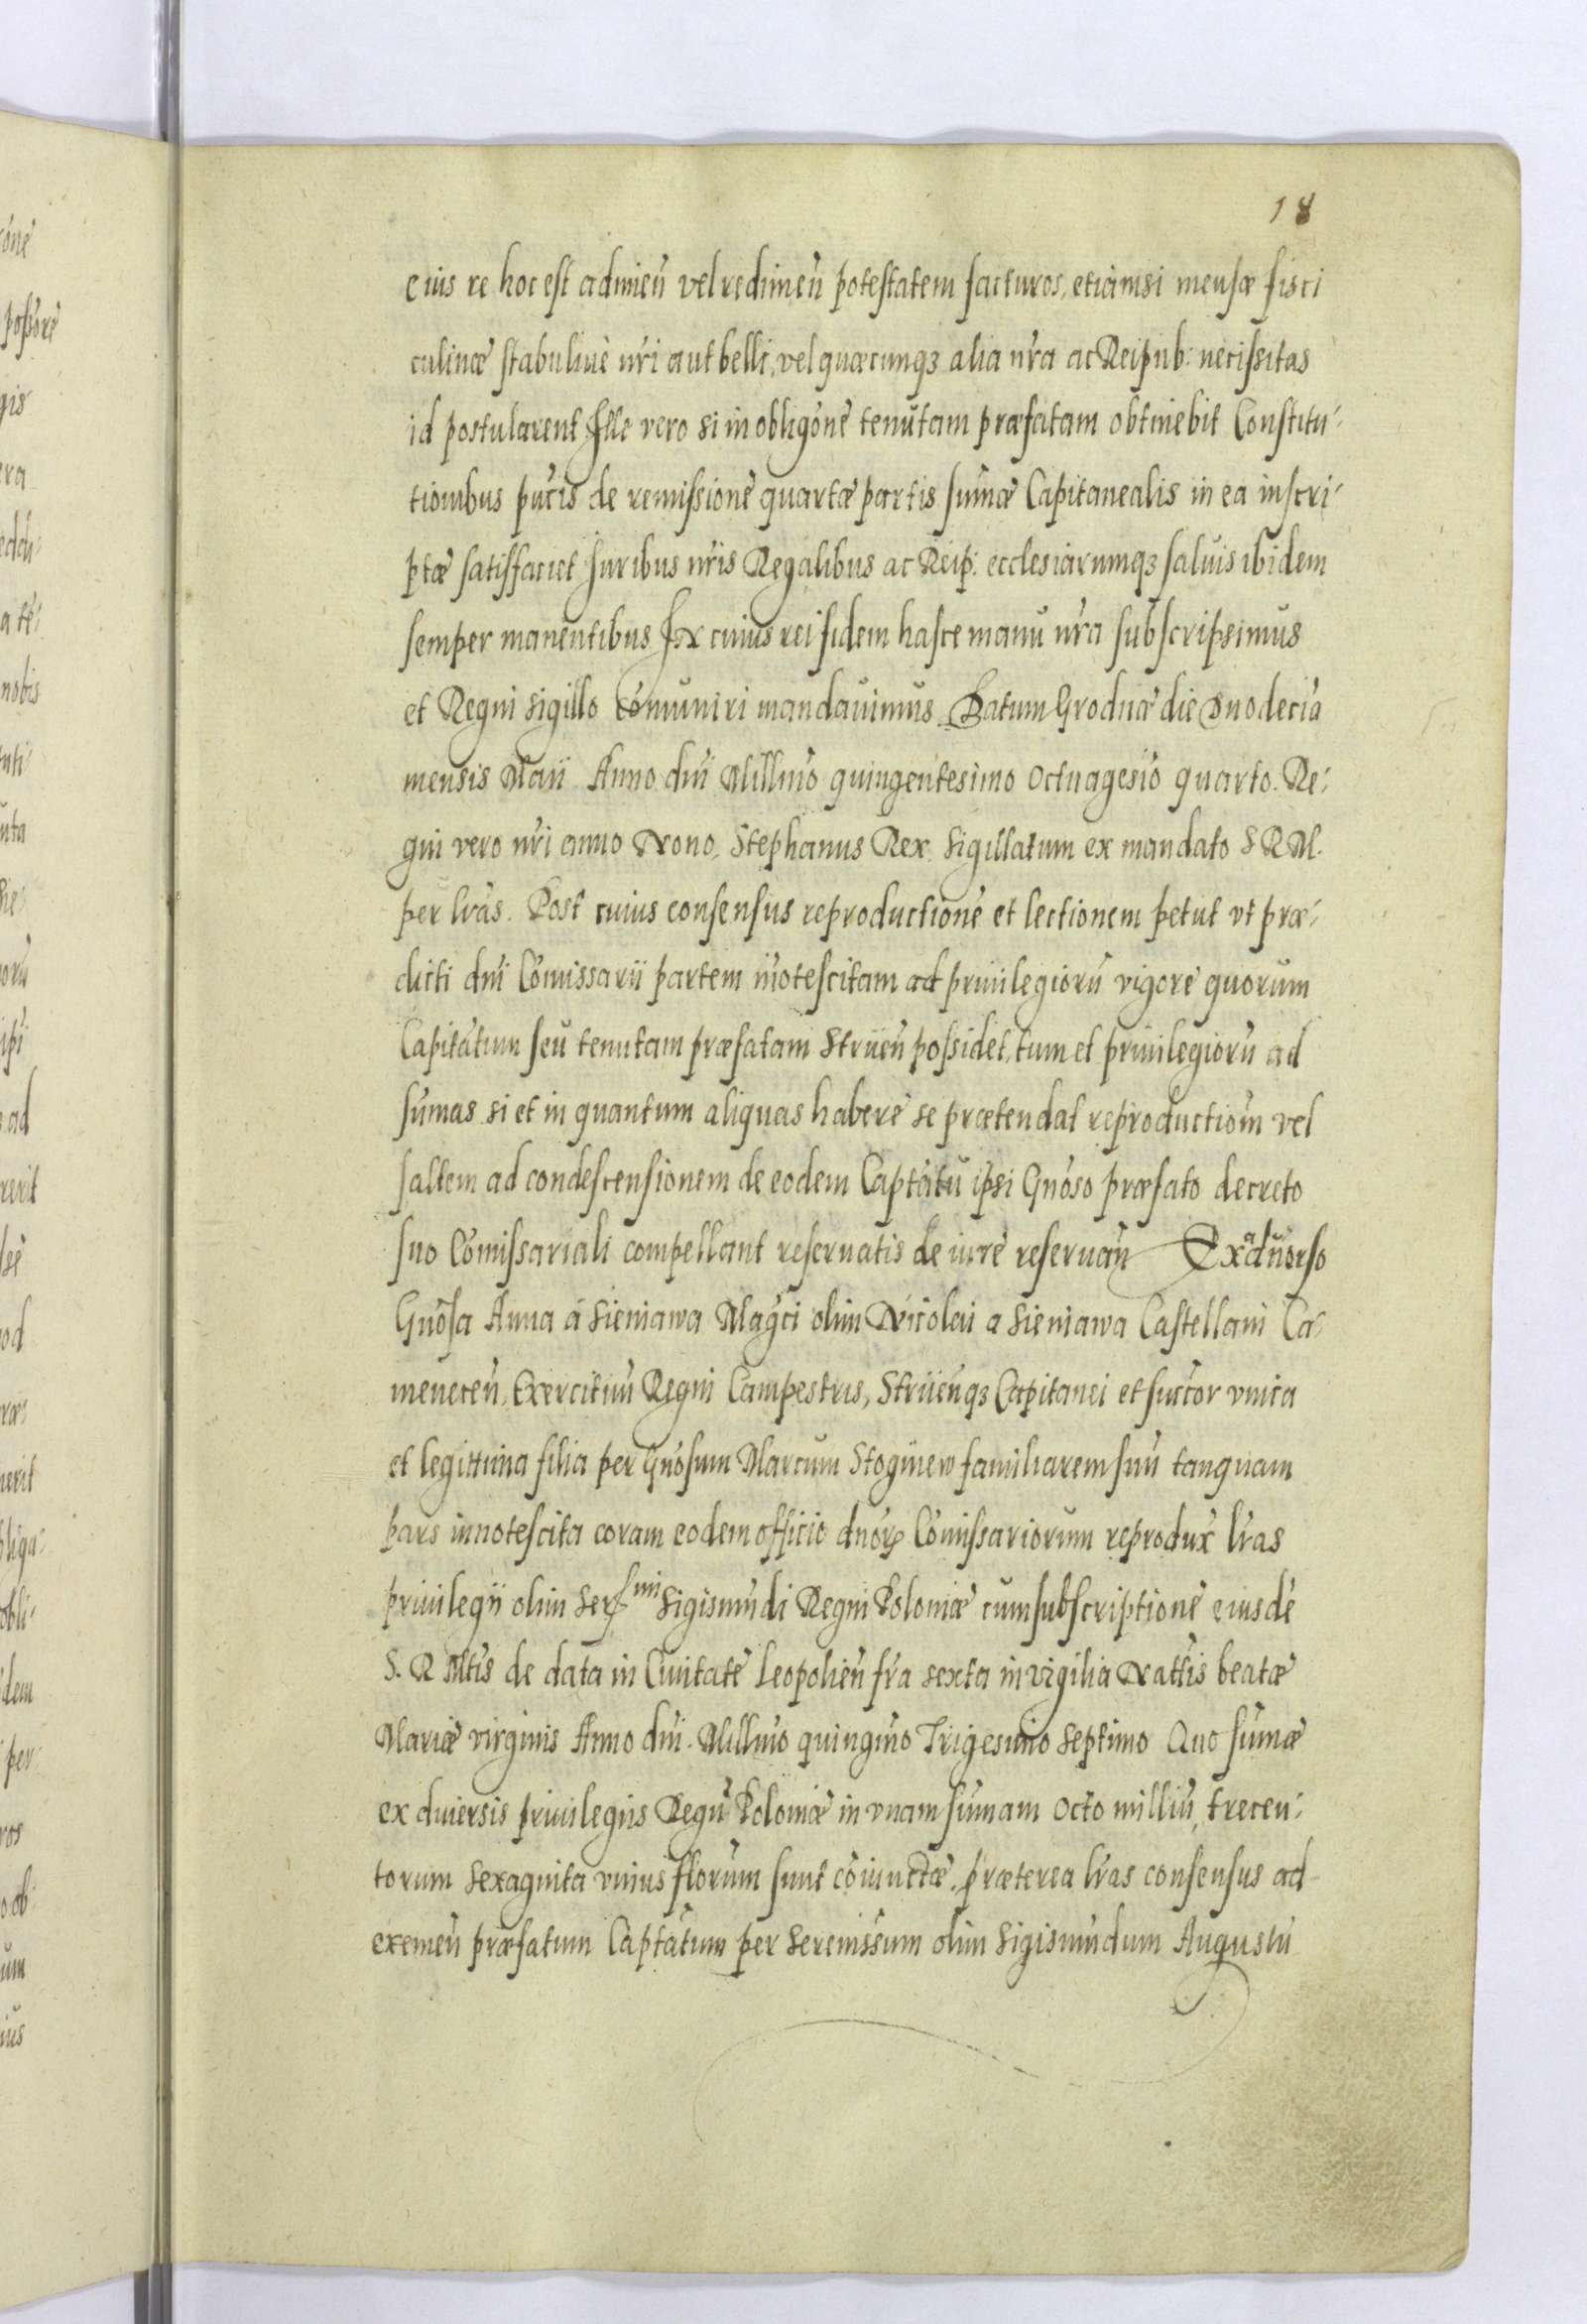 18
eius re hoc est adimeń vel redimeń potestatem facturos, etiamsi mensæ fisci
culinæ stabuliue nr̃i aut belli, vel quæcunqȝ alia nr̃a ac Reipub: necissitas
id postularent Ille vero si in obligõne tenutam præfatam obtinebit Constitu-
tionibus pucis de remissione quartæ partis sum̃æ Capitanealis in ea inscri-
ptæ satisfaciet Iuribus nr̃is Regalibus ac Reip: ecclesiarumqȝ saluis ibidem
semper manentibus In cuius rei fidem hasce manu nr̃a subscripsimus
et Regni sigillo com̃uniri mandauimus. Datum Grodnæ die duodecia
mensis Maii Anno dni Millmo quingentesimo octuagesio quarto. Re-
gni vero nr̃i anno Nono. Stephanus Rex. sigillatum ex mandato S R M.
per lr̃as. Post cuius consensus reproductione et lectionem petut vt præ-
dicti dni Com̃issarii partem inotescitam ad priuilegiorũ vigore quorum
Capitatum seu tenutam præfatam Striień possidet, tum et priuilegiorũ ad
sum̃as si et in quantum aliquas habere se prætendat reproductiom vel
saltem ad condescensionem de eodem Captatu ipsi Gnõso præfato decreto
suo Com̃issariali compellant reseruatis de iure reseruań Ex aduorso
Gnõsa Anna á Sieniawa Magci olim Nicolai a Sieniawa Castellani Ca-
meneceń, Exercituũ Regni Campestris, Striieńqȝ Capitanei et succor vnica
et legittima filia per Gnõsum Marcum Stoginew familiarem suũ tanquam
pars innotescita coram eodem officio dnoꝝ Com̃issariorum reprodux lr̃as
priuilegii olim Serssmi Sigismundi Regni Poloniæ cum subscriptione eiusde
S. R Mtis de data in Ciuitate Leopolień fr̃a sexta in vigilia Nattis beatæ
Mariæ virginis Anno dni. Millmo quingmo Trigesimo septimo Quo sum̃æ
ex diuersis priuilegiis Regũ Poloniæ in vnam sum̃am octo milliũ, trecen-
torum sexaginta vnius florum sunt coiunctæ. præterea lr̃as consensus ad
exemeń præfatum Captatum per Serenissum olim Sigismundum Augustũ